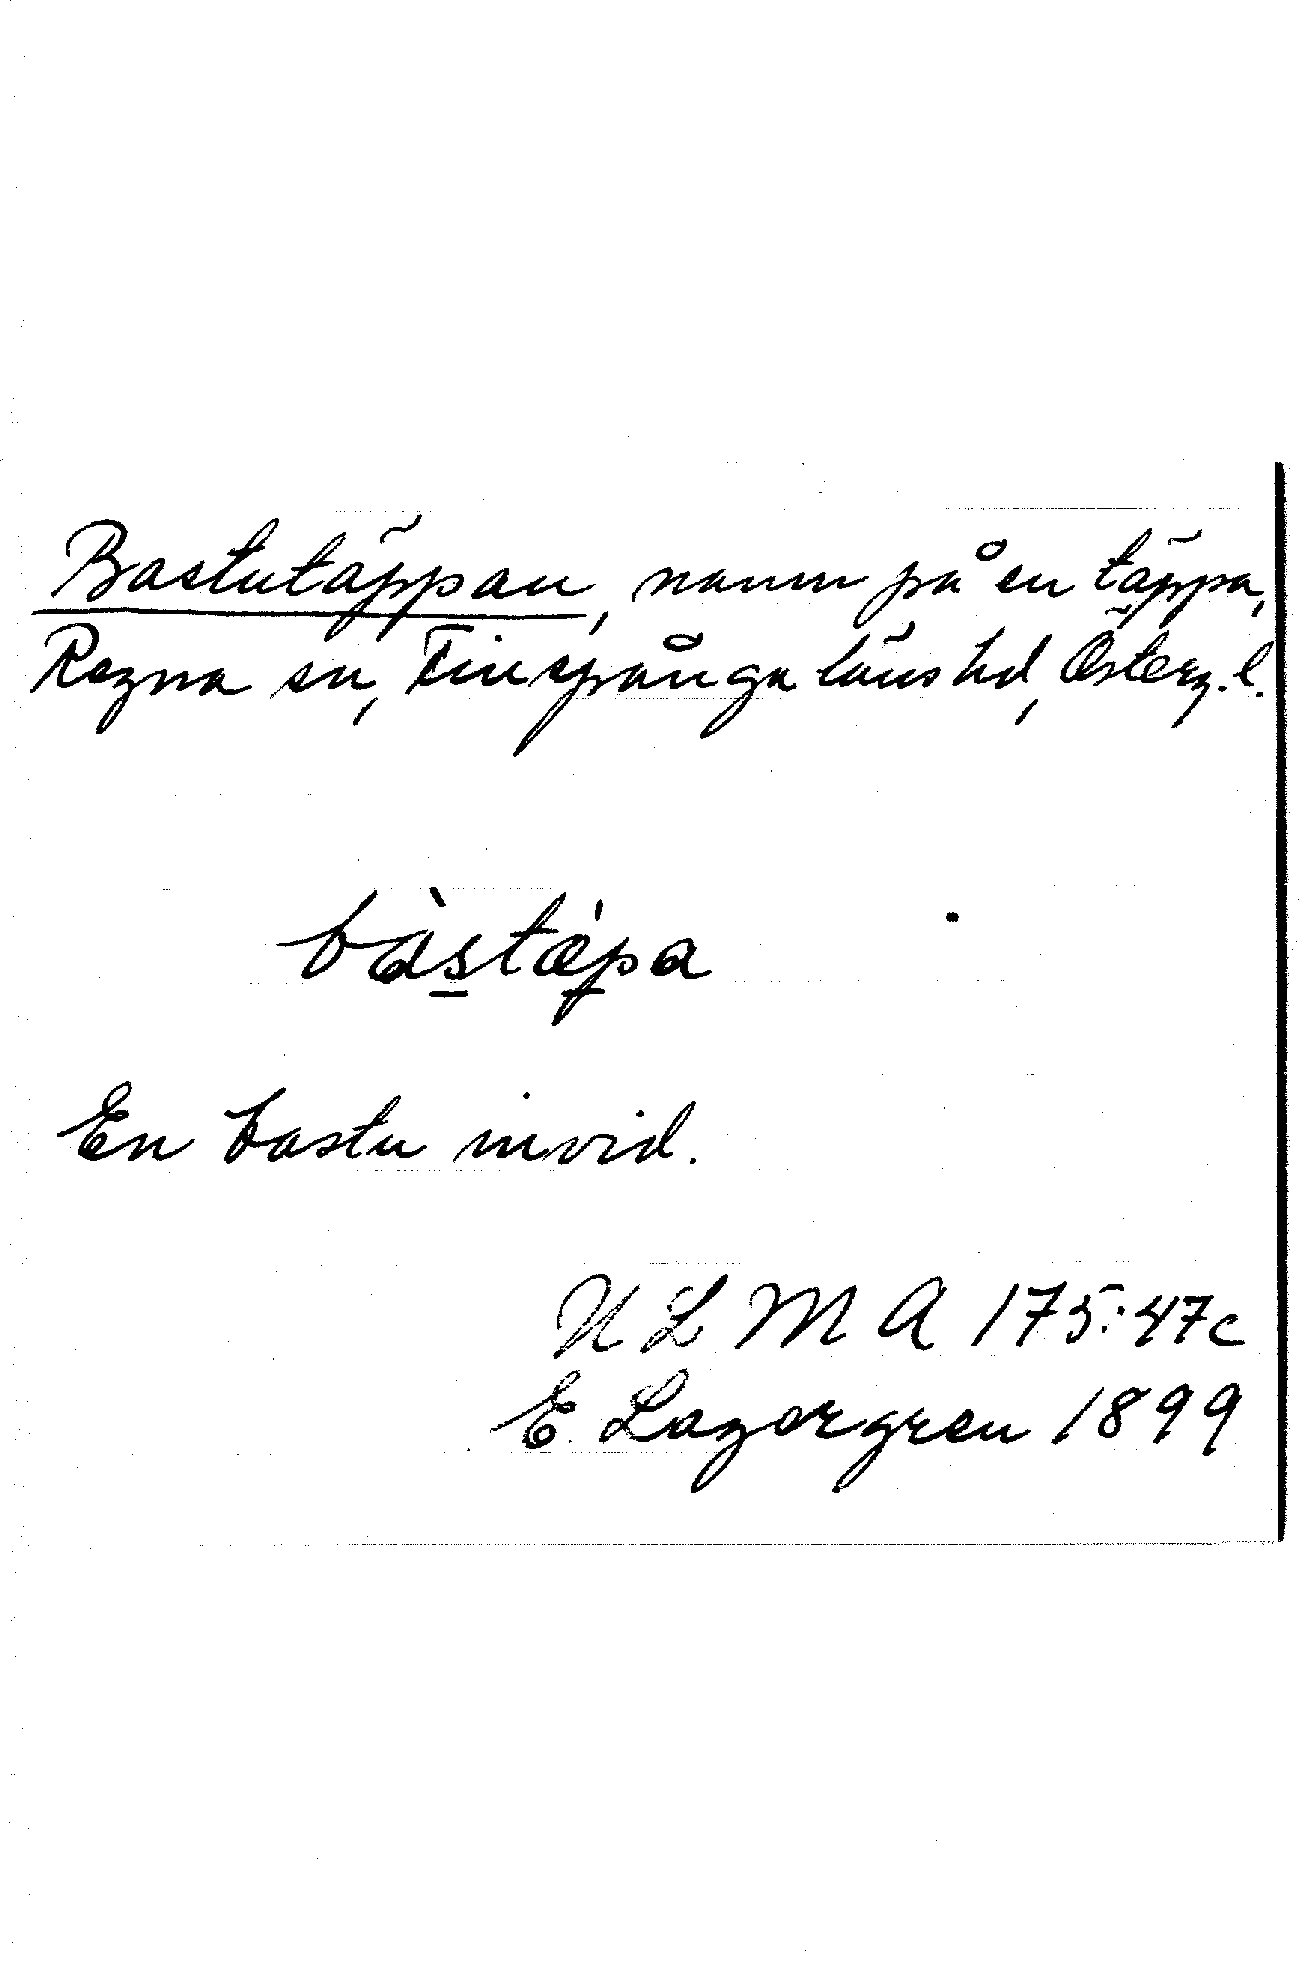 Bastutäppan, namn på en täppa,
Regna sn, Finspånga läns hd, Österg. l.
bàstǽpa
En bastu invid.
ULMA 175:47c
E. Lagergren 1899